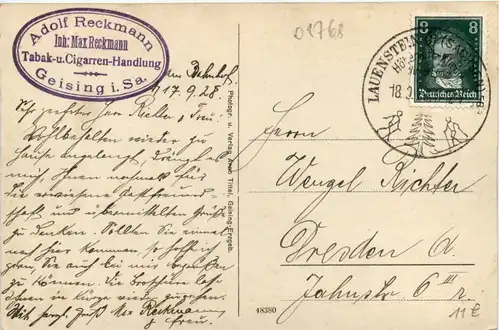 01768
Adolf Reckmann
Inh: Max Reckmann
Tabak-u.Cigarren-Handlung
Geising i. Sa.
am Bahnhof,
17.9.28.
Ihr geehrter Herr Richter & Frau!
Wohlbehalten wieder zu
Hause angelangt, drängt es
mich, Ihnen nochmals für
die erwiesene Gastfreund-
schaft und übermittelten Grüße
zu danken. Sollten Sie einmal
nach hier kommen so hoffentlich
gern, Sie auch bei mir begrüßen
zu können. Die Broschüre lasse
Ihnen in Kürze wieder zugehen.
Mit herzl. Gruß Max Reckmann
& Frau.
Photogr. u. Verlag Arno Tittel, Geising-Erzgeb.
48380
8 8
Deutsches Reich
LAUENSTEIN
18.
Herrn
Wenzel Richter
Dresden A.
Jahnstr. 6 III r.
11 €